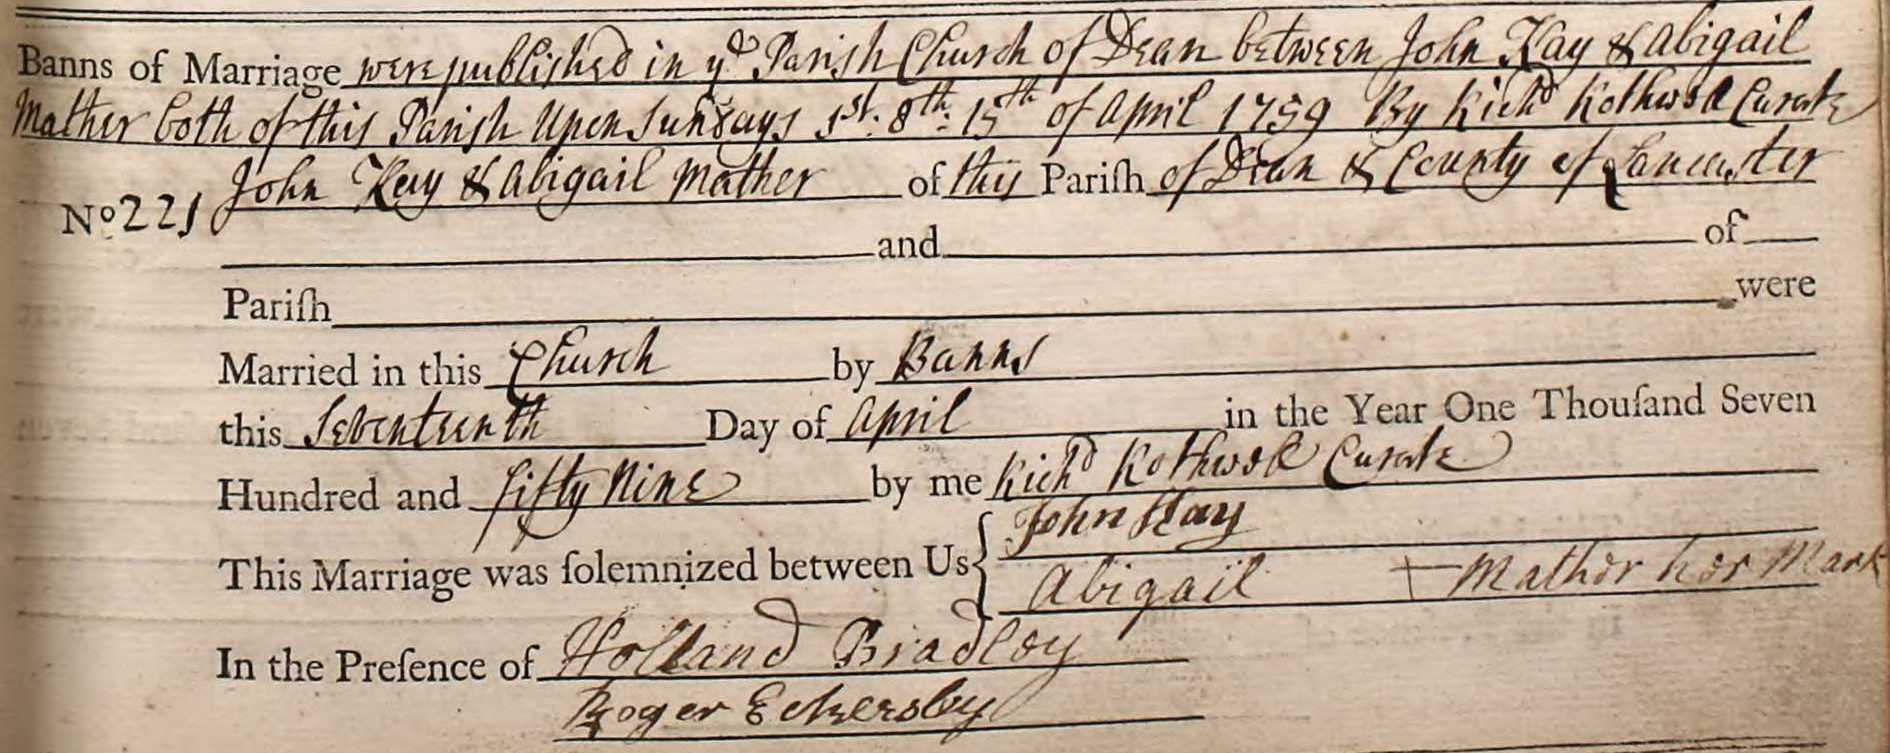 Banns of Marriage were published in yᵉ Parish Church of Dean between John Kay & Abigail
Mather both of this Parish Upon Sundays 1st. 8th: 15th of April 1759 By Richd Rothwell Curate
No 221 John Kay & Abigail Mather of this Pariſh of Dean & County of Lancaster
and of
Pariſh were
Married in this Church by Banns
this Seventeenth Day of April in the Year One Thouſand Seven
Hundred and fifty Nine by me Richd Rothwell Curate
This Marriage was ſolemnized between Us { John Kay
Abigail + Mather her Mark
In the Preſence of Holland Bradley
Roger Eckersley